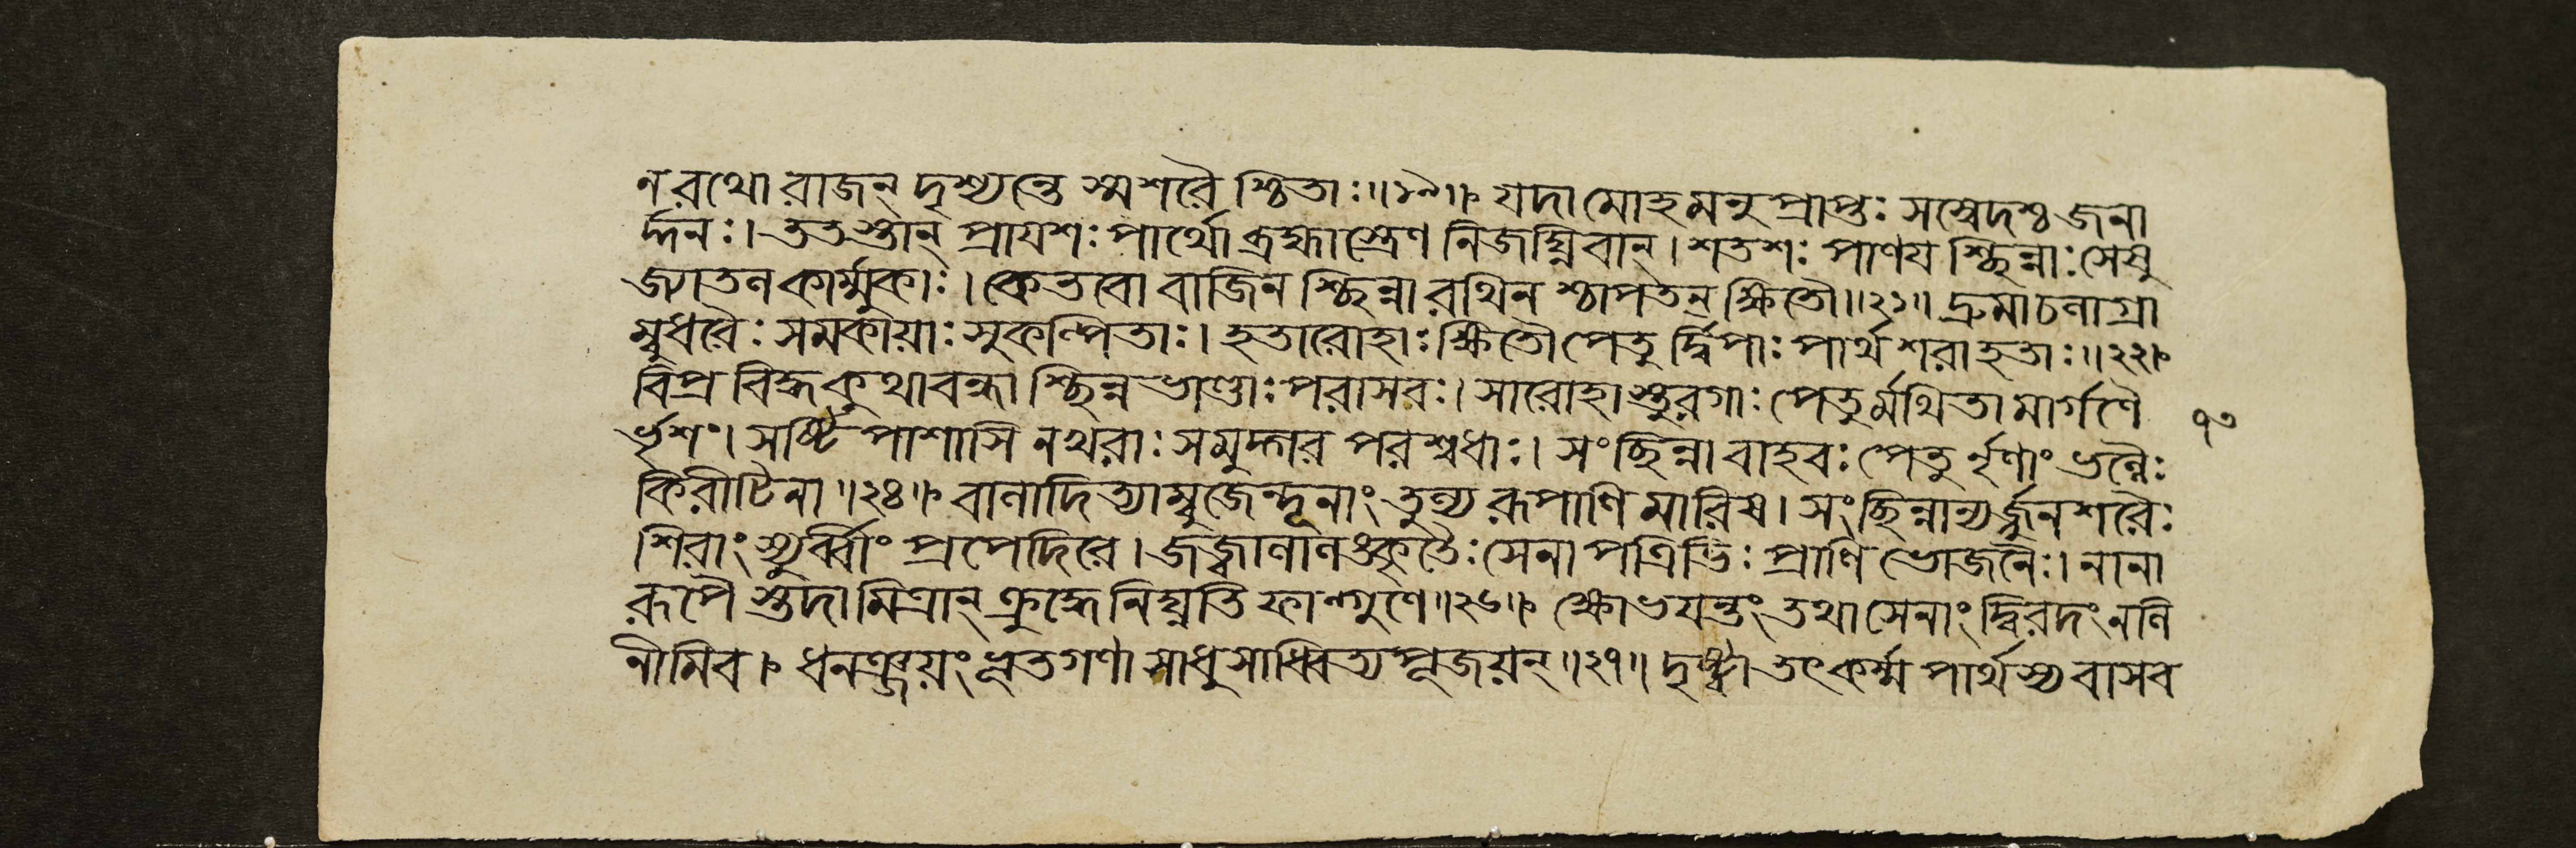 ন রথো রাজন্ দৃশ্যন্তে স্ম শরৈ শ্চিতাঃ॥১৯॥ যদা মোহমনুপ্রাপ্তঃ সস্বেদশ্চ জনা
র্দ্দনঃ। ততস্তান্ প্রাযশঃ পার্থো ব্রহ্মাস্ত্রেণ নিজঘ্নিবান্। শতশঃ পাণয শ্ছিন্নাঃ সেষু
জ্যাতল কার্ম্মুকাঃ। কেতবো বাজিন শ্ছিন্না রথিন শ্চাপতন্ ক্ষিতৌ॥২১॥ দ্রুমাচলাগ্রা
ম্বুধরৈঃ সমকায়াঃ সুকল্পিতাঃ। হতারোহাঃ ক্ষিতৌ পেতু র্দ্বিপাঃ পার্থ শরাহতাঃ॥২২॥
বিপ্রবিদ্ধ কুথাবন্ধা শ্ছিন্ন ভাণ্ডাঃ পরাসবঃ। সারোহাস্তুরগাঃ পেতুর্মথিতা মার্গণৈ
র্ভৃশং। সর্ষ্টি পাশাসি নখরাঃ সমুদ্গার পরশ্বধাঃ। সংছিন্না বাহবঃ পেতু র্নৃণাং ভল্লৈঃ
কিরীটিনা॥২৪॥ বালাদিত্যাম্বুজেন্দূনাং তুল্য রূপাণি মারিষ। সংছিন্নান্যর্জ্জুন শরৈঃ
শিরাংস্যুর্ব্বীং প্রপেদিরে। জজ্বালালঙ্কৃতৈঃ সেনা পত্রিভিঃ প্রাণি ভোজনৈঃ। নানা
রূপৈ স্তদামিত্রান্ ক্রুদ্ধে নিঘ্নতি ফাল্গুণে॥২৬॥ ক্ষোভযন্তং তথা সেনাং দ্বিরদং নলি
নীমিব। ধনঞ্জয়ং ভূতগণা সাধু সাধ্বিত্য পূজয়ন্॥২৭॥ দৃষ্ট্বা তৎ কর্ম্ম পার্থস্য বাসব
৭৩